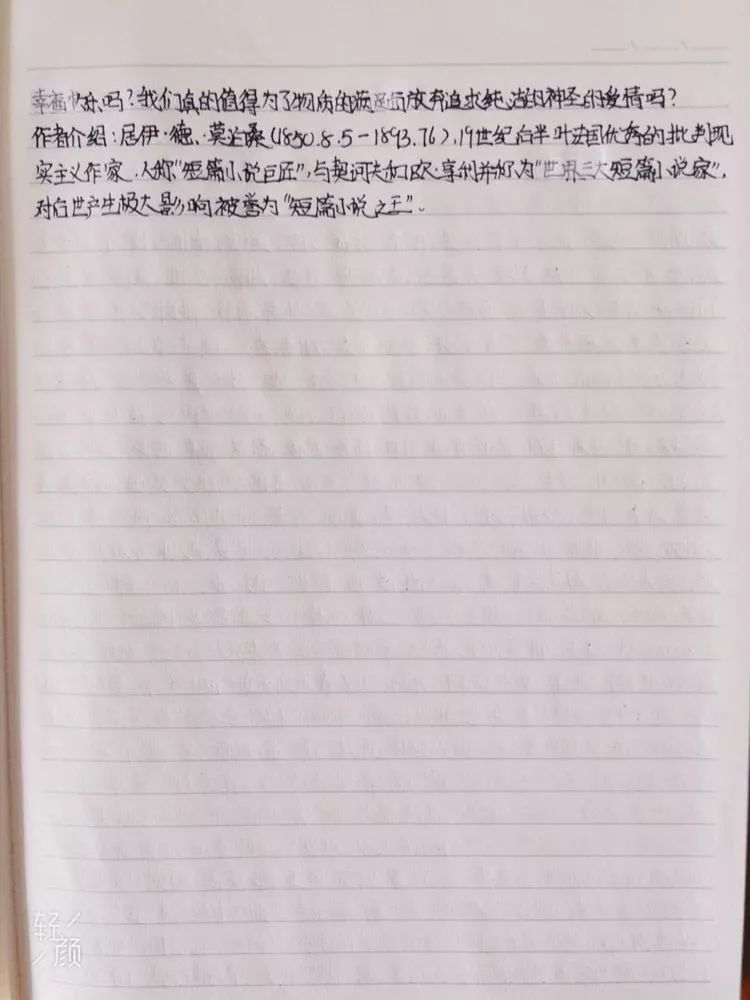 幸福快乐吗?我们真的值得为了物质的满足而放弃追求纯洁的神圣的爱情吗?
作者介绍:居伊·德·莫泊桑(1850.8.5-1893.7.6),19世纪后半叶法国优秀的批判现
实主义作家,人称"短篇小说巨匠",与契诃夫和欧·亨利并称为"世界三大短篇小说家",
对后世产生极大影响被誉为"短篇小说之王"。
轻
颜